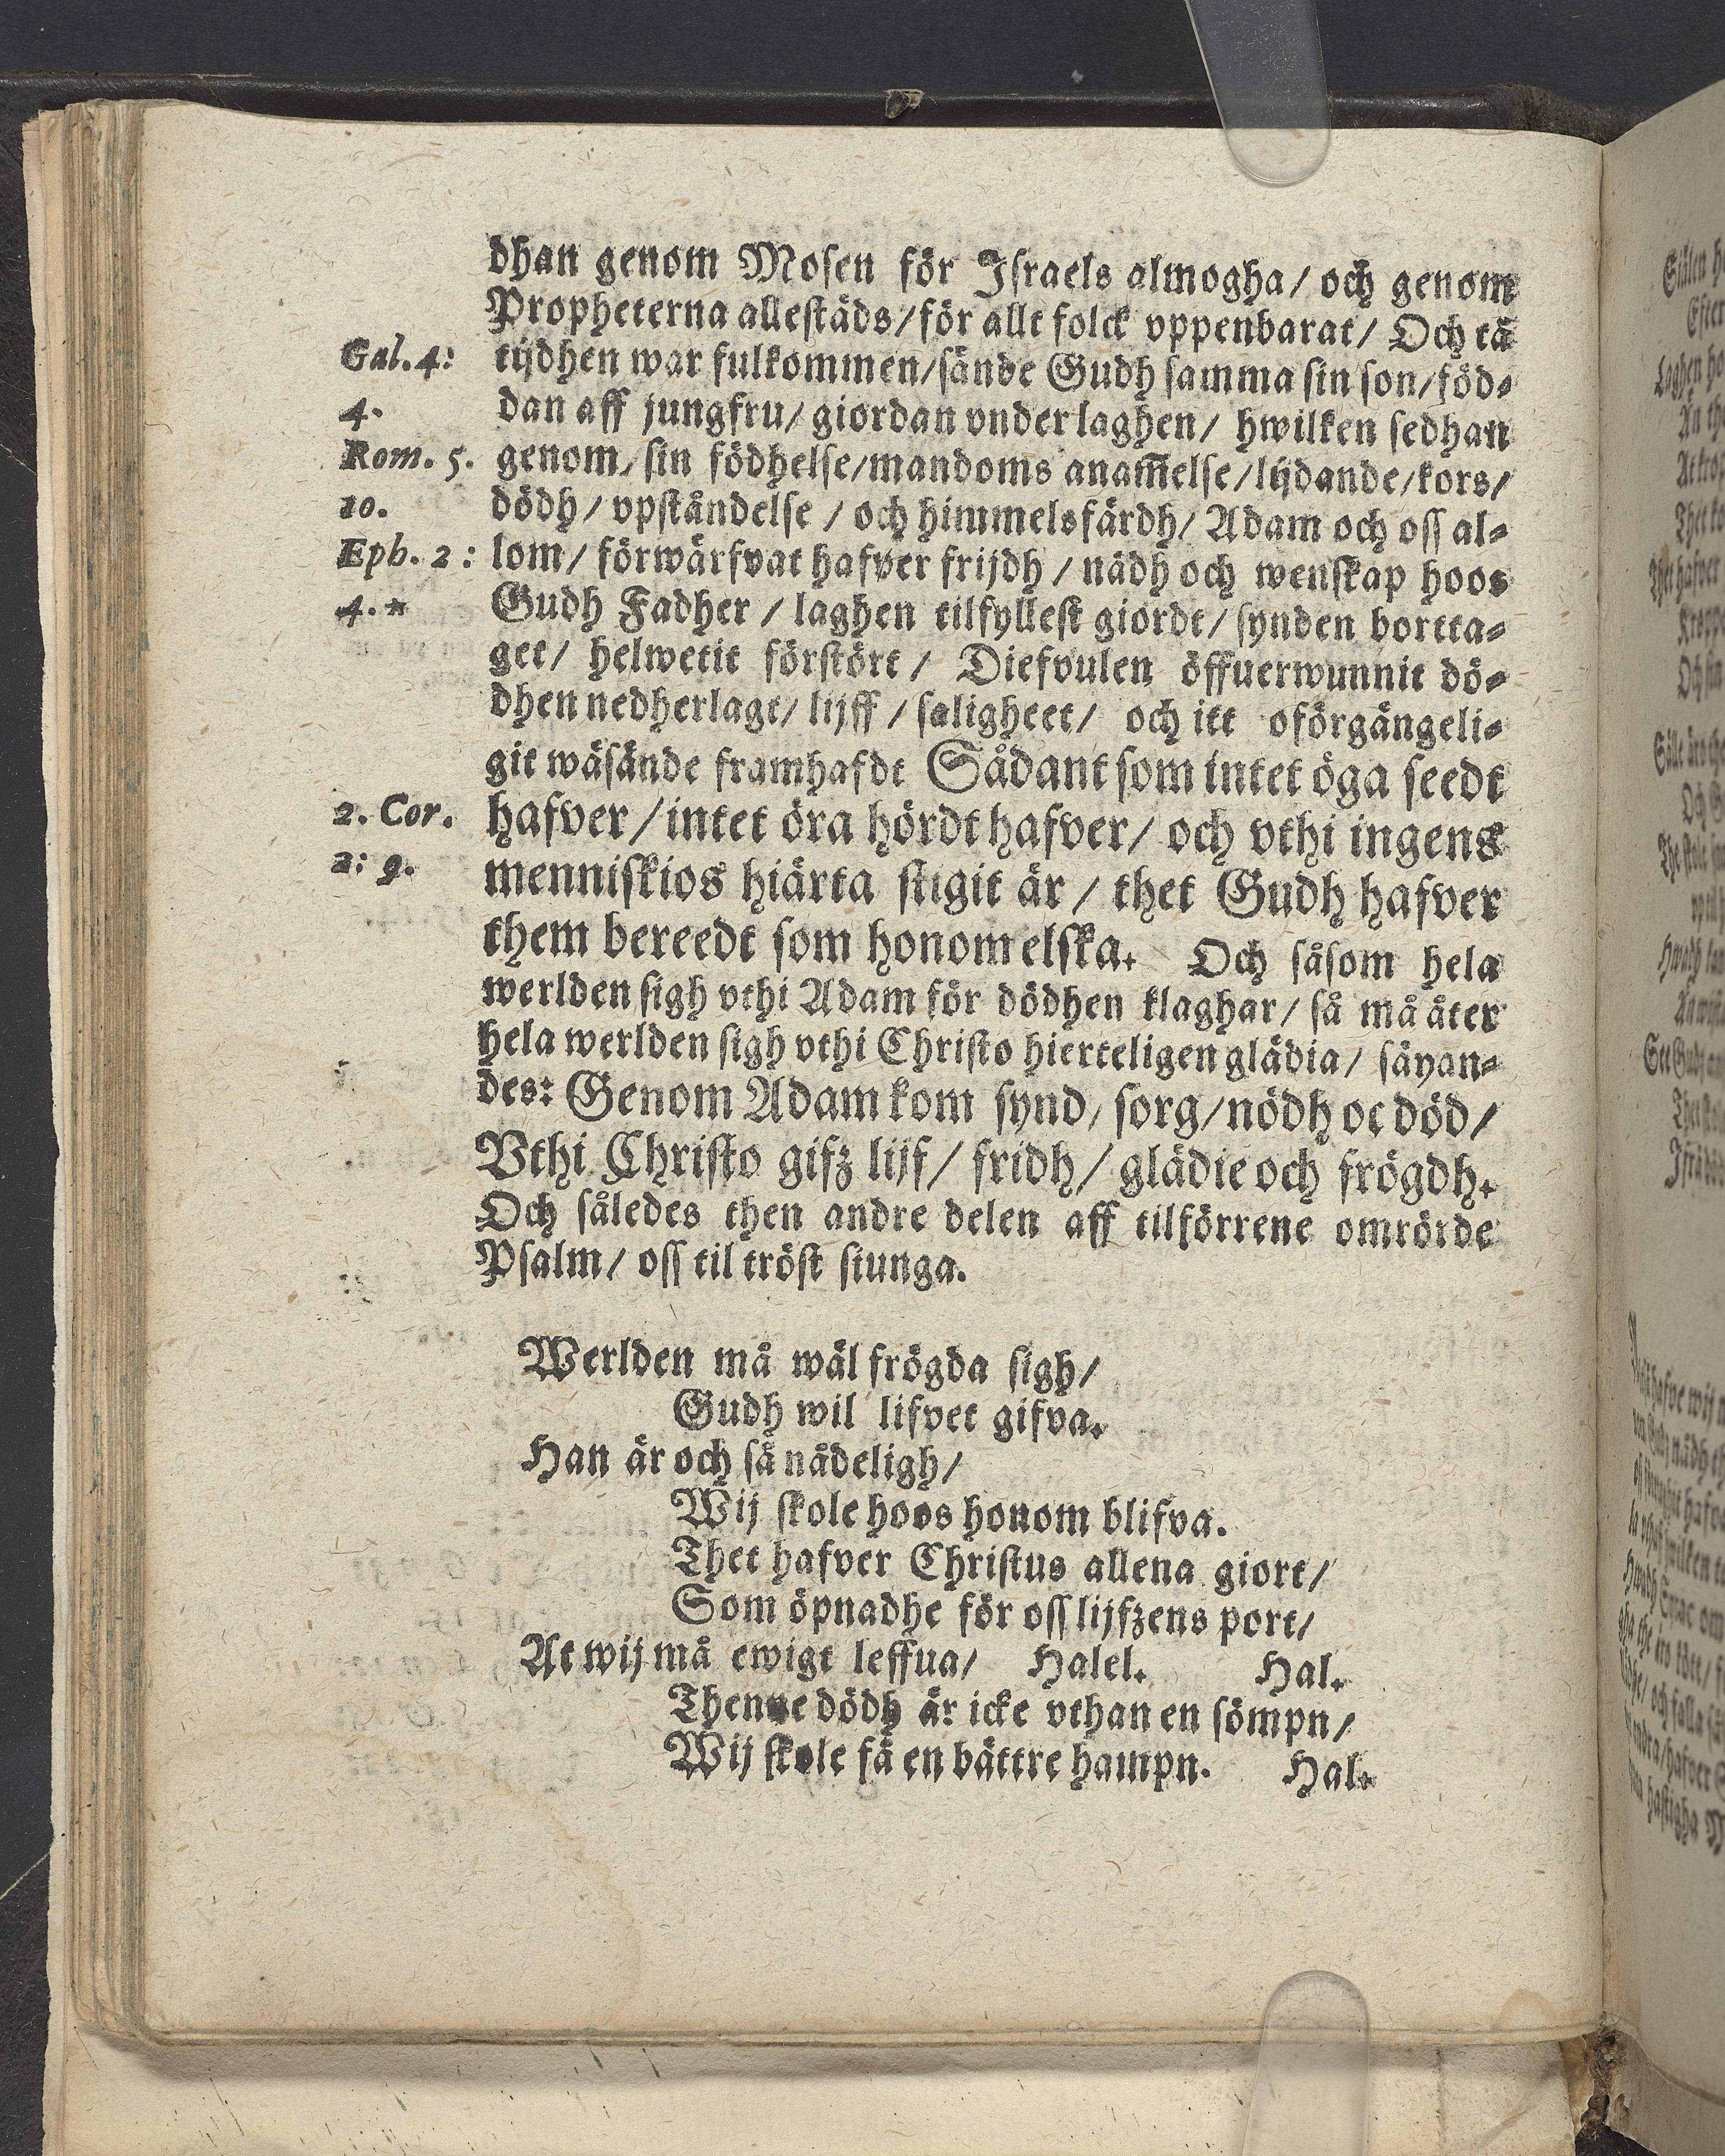 dhan genom Mosen för Israels almogha / och genom
Propheterna allestäds / för allt folck vppenbarat / Och tå
Gal. 4: tijdhen war fulkommen / sände Gudh samma sin son / föd⸗
4. dan aff jungfru / giordan vnder laghen / hwilken sedhan
Rom. 5. genom / sin födhelse / mandoms anam̃else / lijdande / kors /
10. dödh / vpståndelse / och himmelsfärdh / Adam och oss al⸗
Eph. 2: lom / förwärfvat hafver frijdh / nådh och wenskap hoos
4. * Gudh Fadher / laghen tilfyllest giordt / synden bortta⸗
get / helwetit förstört / Diefvulen öffuerwunnit dö⸗
dhen nedherlagt / lijff / saligheet / och itt oförgängeli⸗
git wäsände framhafdt Sådant som intet öga seedt
2. Cor. hafver / intet öra hördt hafver / och vthi ingens
2: 9. menniskios hiärta stigit är / thet Gudh hafver
them bereedt som honom elska. Och såsom hela
werlden sigh vthi Adam för dödhen klaghar / så må åter
hela werlden sigh vthi Christo hierteligen glädia / säyan⸗
des: Genom Adam kom synd / sorg / nödh oc död /
Vthi Christo gifz lijf / fridh / glädie och frögdh.
Och således then andre delen aff tilförrene omrörde
Psalm / oss til tröst siunga.
Werlden må wäl frögda sigh /
Gudh wil lifvet gifva.
Han är och så nådeligh /
Wij skole hoos honom blifva.
Thet hafver Christus allena giort /
Som öpnadhe för oss lijfzens port /
At wij må ewigt leffua / Halel. Hal.
Thenne dödh är icke vthan en sömpn /
Wij skole få en bättre hampn. Hal.